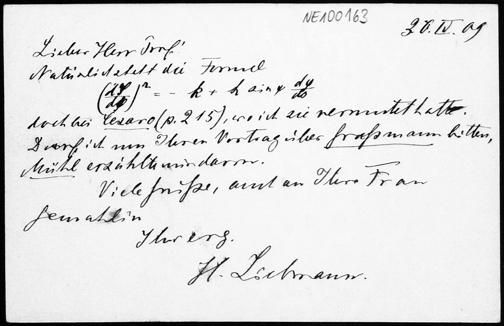 NEA00163
20. IV. 09
Lieber Herr Prof!
Natürlich steht die Formel
(dφ/dθ)² = - k + h sin φ dφ/dθ
doch bei Cesaro (p. 215), wo ich sie vermutet hatte.
Darf ich um Ihren Vortrag über Graßmann bitten,
Mühl erzählte mir davon.
Viele Grüße, auch an Ihre Frau
Gemahlin
Ihr erg.
H. Liebmann.